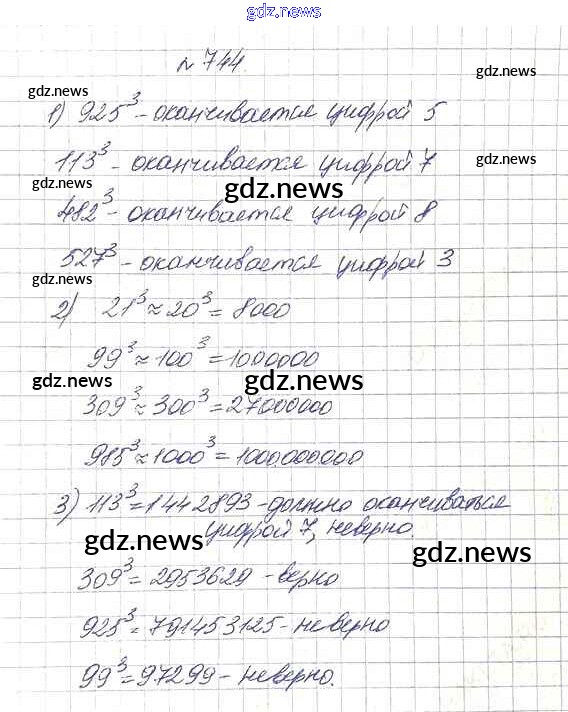 gdz.ru
gdz.news
№ 744.
gdz.news
gdz.news
1) 925³ - оканчивается цифрой 5
113³ - оканчивается цифрой 7
gdz.news
gdz.news
gdz.news
482³ - оканчивается цифрой 8
527³ - оканчивается цифрой 3
gdz.news
2) 21³ ≈ 20³ = 8000
99³ ≈ 100³ = 1000000
gdz.news
gdz.news
309³ ≈ 300³ = 27000000
985³ ≈ 1000³ = 1000.000.000
3) 113³ = 1442893 - должно оканчиваться
цифрой 7, неверно.
gdz.news
gdz.news
309³ = 2953629 - верно
925³ = 791453125 - неверно
99³ = 97299 - неверно.
gdz.ru